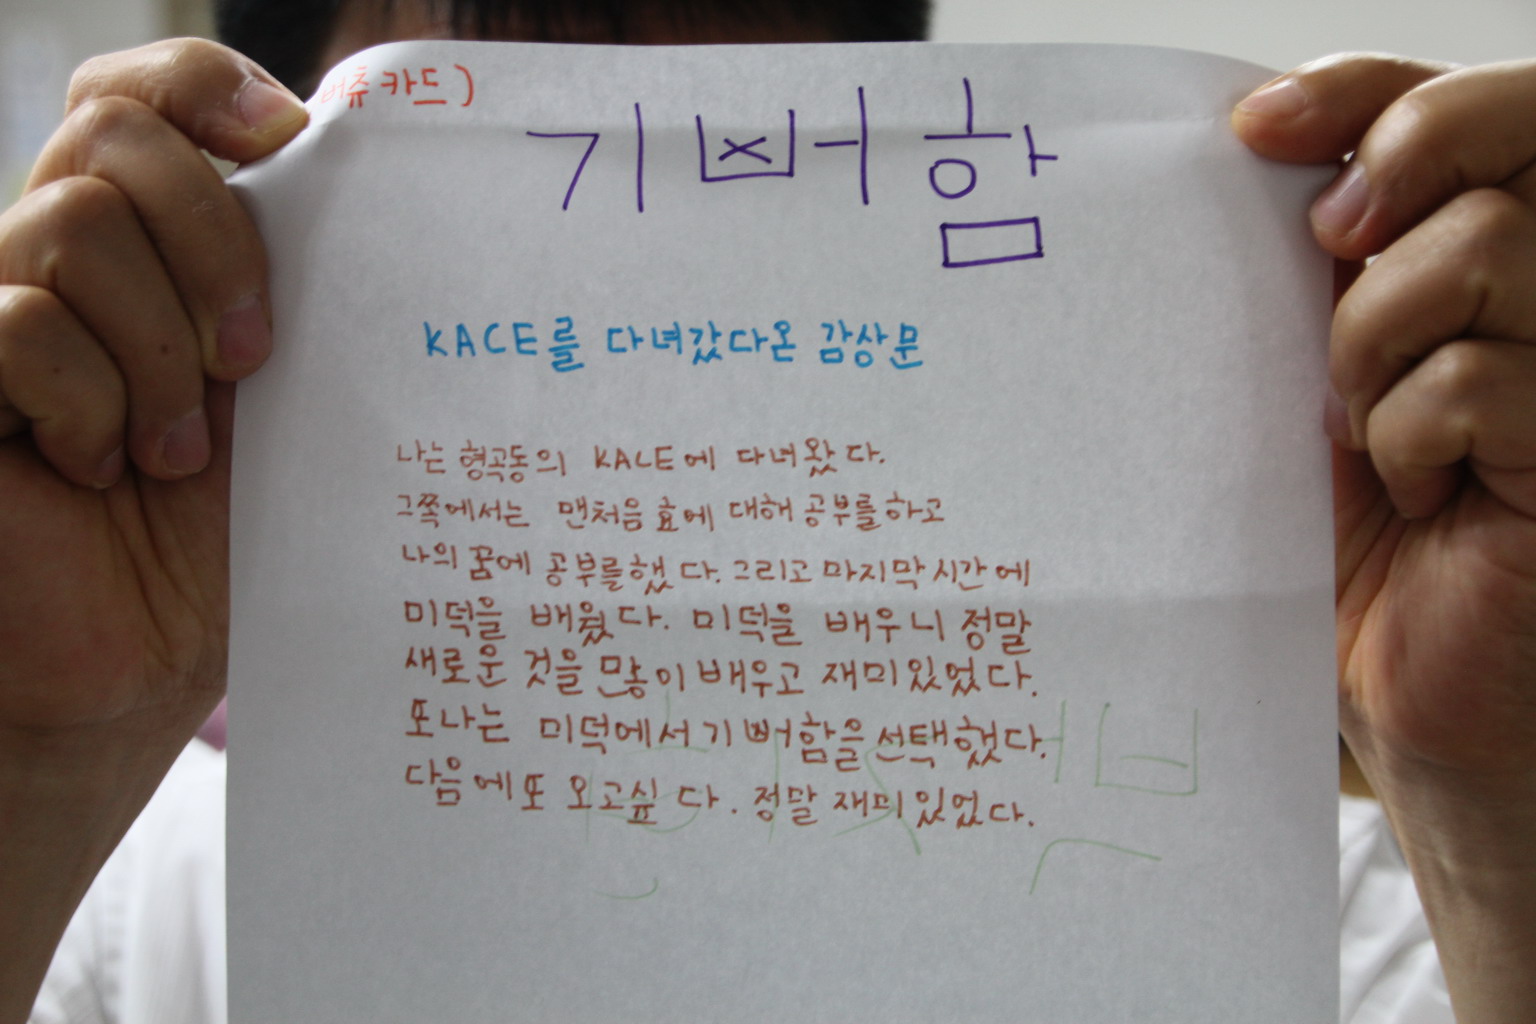 버츄카드)
기뻐함
KACE를 다녀갔다온 감상문
나는 형곡동의 KACE에 다녀왔다.
그쪽에서는 맨처음 효에 대해 공부를하고
나의 꿈에 공부를했다. 그리고 마지막 시간에
미덕을 배웠다. 미덕을 배우니 정말
새로운 것을 많이 배우고 재미있었다.
또나는 미덕에서 기뻐함을 선택했다.
다음에또 오고싶다. 정말 재미있었다.